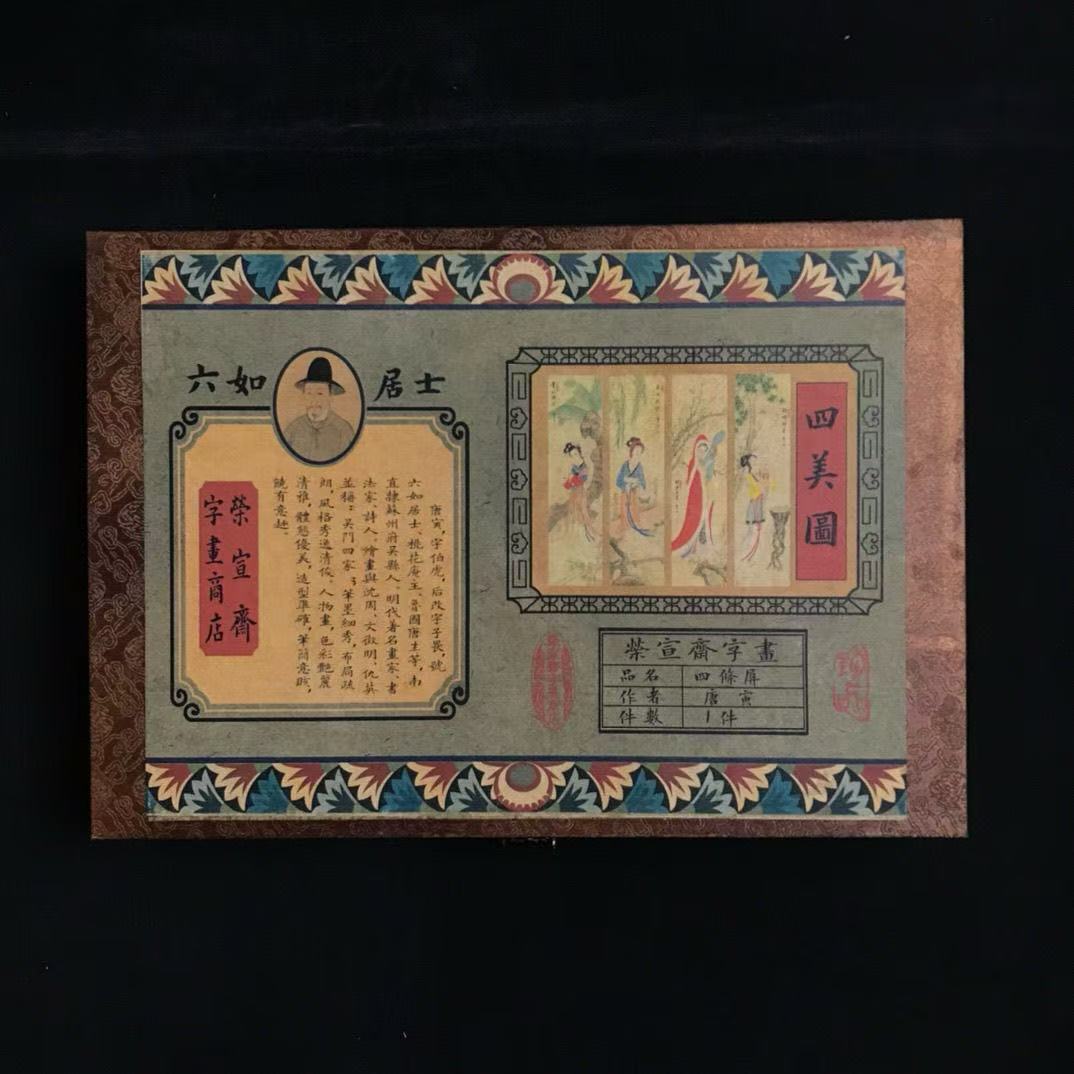 六如居士
唐寅,字伯虎,后改字子畏,號
六如居士、桃花庵主、魯國唐生等,南
直隸蘇州府吳縣人,明代著名畫家、書
法家、詩人。繪畫與沈周、文徵明、仇英
並稱:吳門四家;筆墨細秀,布局疏
朗,風格秀逸清俊。人物畫,色彩艷麗
清雅,體態優美,造型準確,筆簡意賅,
饒有意趣。
榮宣齋
字畫商店
四美圖
榮宣齋字畫
品名 四條屏
作者 唐寅
件數 1件